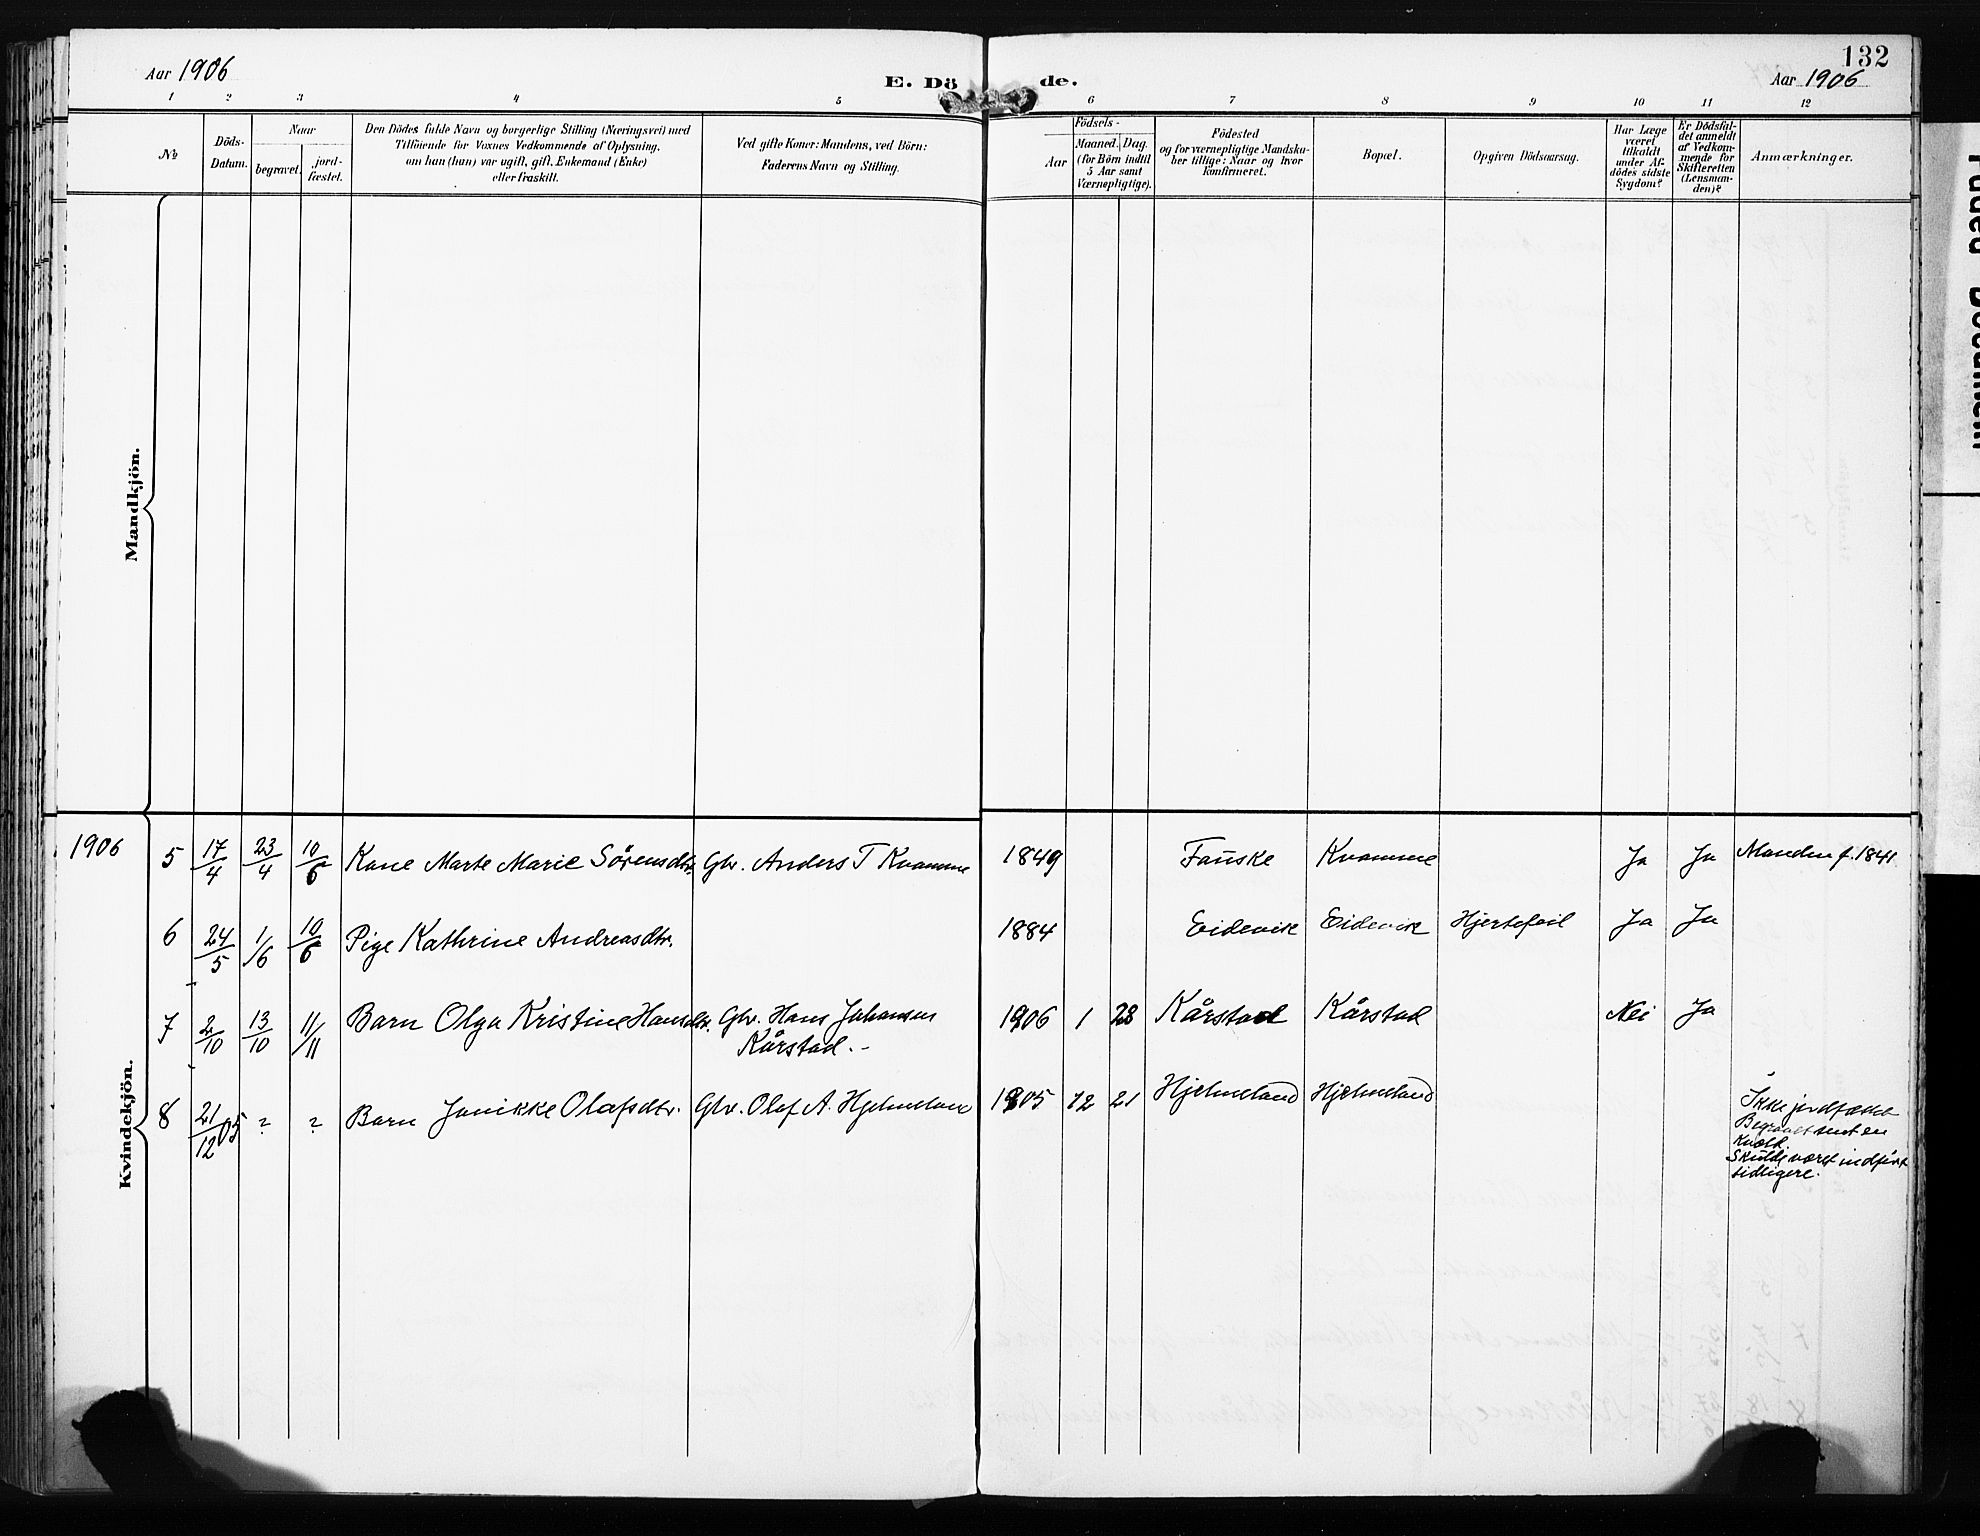 Aar 1906
E. Dö de.
132
Aar 1906
1 2 3 4 5 6 7 8 9 10 11 12
№
Döds-
Datum.
Naar
begravet.
jord-
fæstet.
Den Dödes fulde Navn og borgerlige Stilling (Næringsvei) med
Tilföiende for Voxnes Vedkommende af Oplysning,
om han (hun) var ugift, gift, Enkemand (Enke)
eller fraskilt.
Ved gifte Koner: Mandens, ved Börn:
Faderens Navn og Stilling.
Födsels-
Aar
Maaned. Dag.
(for Börn indtil
5 Aar samt
Værnepligtige).
Födested
og for værnepligtige Mandska-
ber tillige: Naar og hvor
konfirmeret.
Bopæl.
Opgiven Dödsaarsag.
Har Læge
været
tilkaldt
under Af-
dödes sidste
Sygdom?
Er Dödsfal-
det anmeldt
af Vedkom-
mende for
Skifteretten
(Lensman-
den)?
Anmærkninger.
Mandkjön.
Kvindekjön.
1906 5 17/4 23/4 10/6 Kone Marte Marie Sörensdtr. Gbr. Anders T Kvamme 1849 Fauske Kvamme Ja Ja Manden f. 1841
6 24/5 1/6 10/6 Pige Kathrine Andreasdtr. 1884 Eidevik Eidevik Hjertefeil Ja Ja
7 2/10 13/10 11/11 Barn Olga Kristine Hansdtr. Gbr. Hans Johansen 1906 1 28 Kårstad Kårstad Nei Ja
Kårstad.
8 21/12 05 ? ? Barn Jonikke Olafsdtr. Gbr. Olaf A. Hjelmeland 1905 12 21 Hjelmeland Hjelmeland
Ikke jordfæstet
Begravet sent en
Kveld.
Skulde været indfört
tidligere.